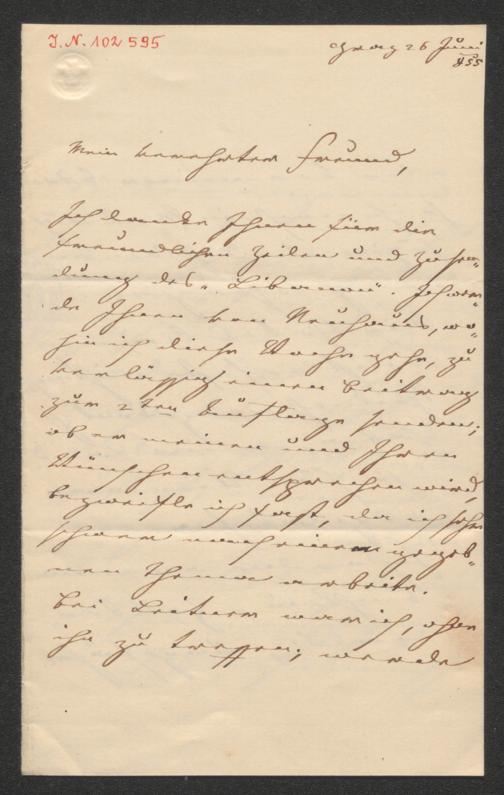 I.N. 102595
Graz 26 Juni
855
Mein verehrter Freund,
Ich danke Ihnen für die
freundlichen Zeilen und Zusen-
dung des „Libanon“. Ich wer-
de Ihnen von Neuhaus, wo-
hin ich diese Woche gehe, zu
verlässig einen Beitrag
zur 2ten Auflage senden;
ob er meinen und Ihren
Wünschen entsprechen wird,
bezweifle ich fast, da ich sehr
schwer nach einem gegeb-
nen Thema arbeite.
Bei Leitner war ich, ohne
ihn zu treffen; werde